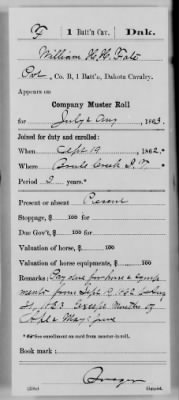 F | 1 Batt'n Cav. | Dak.
William H. H. Fate
Pvt, Co. B, 1 Batt'n, Dakota Cavalry.
Appears on
Company Muster Roll
for July & Aug, 1863.
Joined for duty and enrolled:
When Sept 19, 1862.
Where Creek
Period 3 years.*
Present or absent Present
Stoppage, $ 100 for
Due Gov't, $ 100 for
Valuation of horse, $ 100
Valuation of horse equipments, $ 100
Remarks: Pay due for horse & equip
ments from Sept 19 1862 to Aug
31, 1863 except months of
April & May & June
* See enrollment on card from muster-in roll.
Book mark:
Copyist.